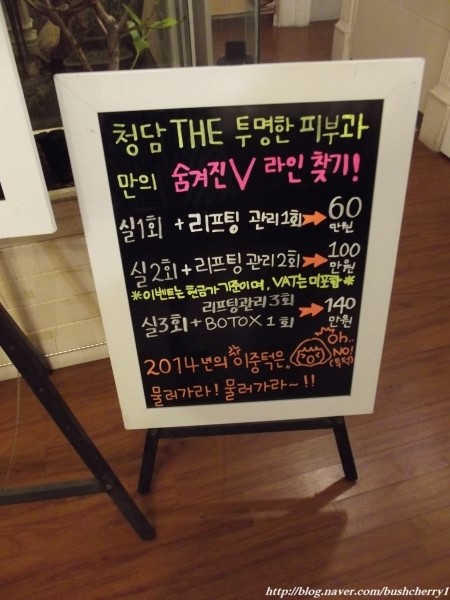 청담 THE 투명한 피부과
만의 숨겨진 V 라인 찾기!
실1회 + 리프팅 관리 1회 → 60만원
실2회 + 리프팅 관리 2회 → 100만원
*이벤트는 현금가 기준이며, VAT는 미포함*
리프팅관리 3회
실3회 + BOTOX 1회 → 140만원
2014년의 이중턱은.. Oh.. NO!
물러가라! 물러가라~!!
http://blog.naver.com/bushcherry1